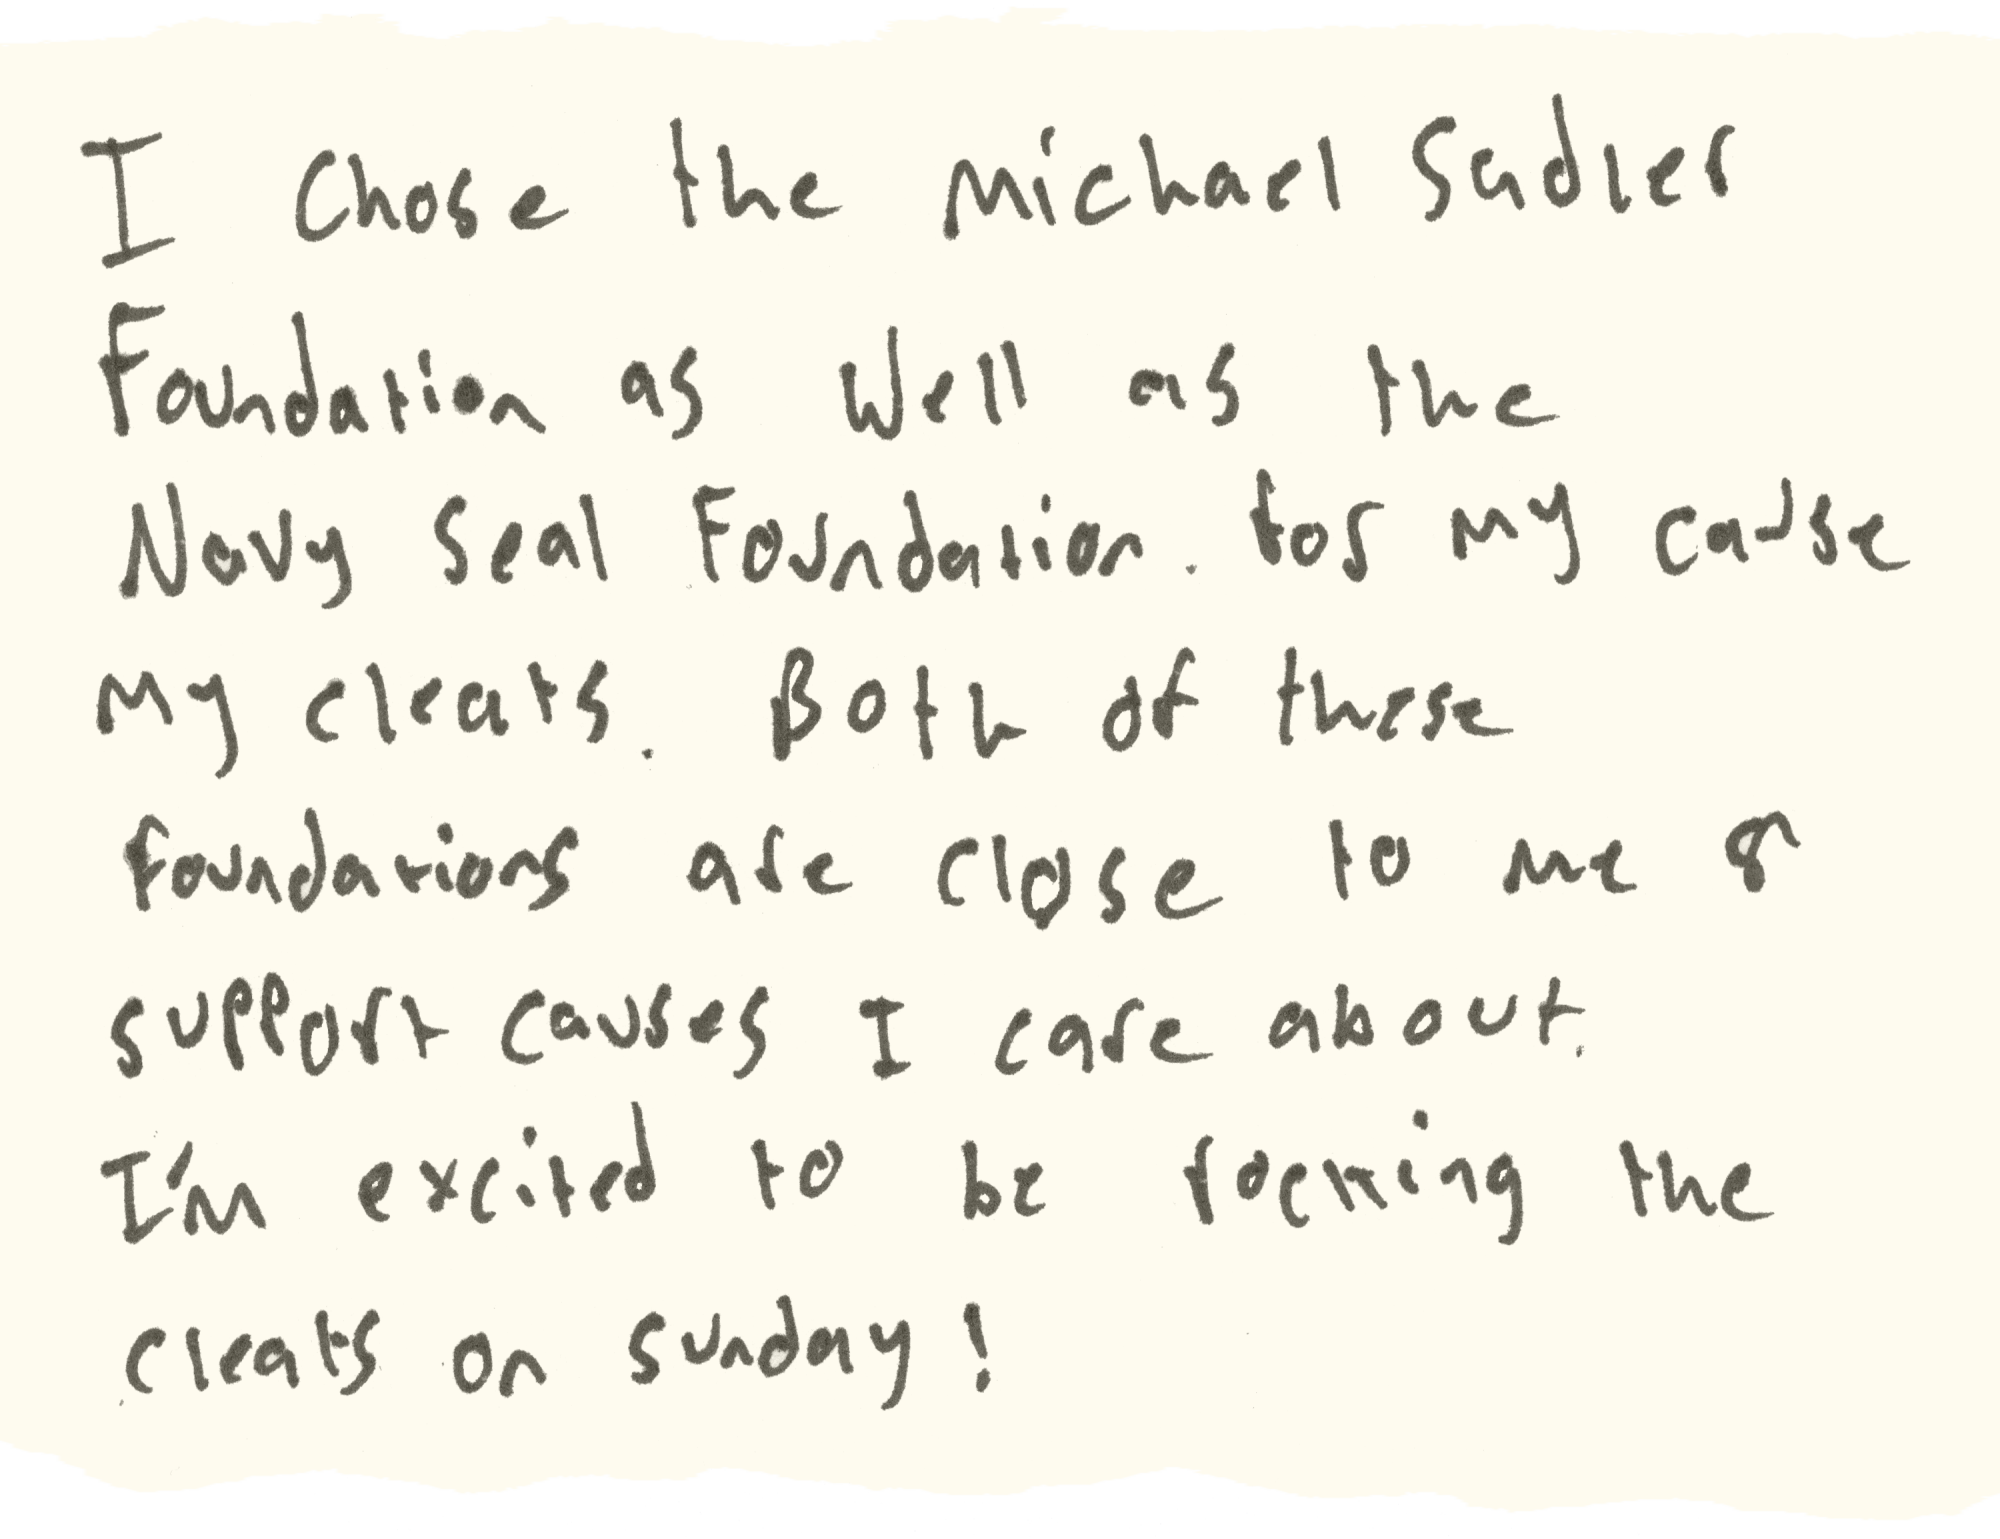 I chose the Michael Sadler
Foundation as well as the
Navy Seal Foundation. for my cause
my cleats. Both of these
foundations are close to me &
support causes I care about.
I'm excited to be rocking the
cleats on Sunday!